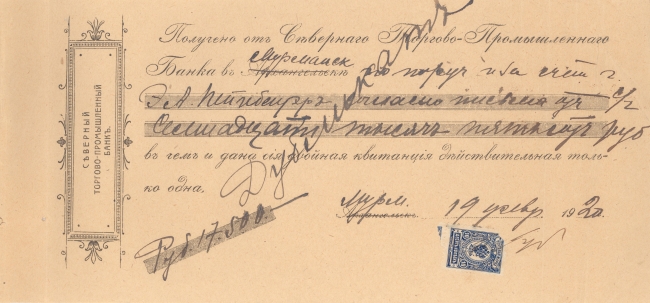 СѢВЕРНЫЙ
ТОРГОВО-ПРОМЫШЛЕННЫЙ
БАНКЪ.
Получено отъ Сѣвернаго Торгово-Промышленнаго
Мурманск
Банка въ Архангельскѣ по поруч и за счет г.
Э. А. согласно письма от с/г
Семнадцать тысяч пятьсот руб
въ чемъ и дана сія двойная квитанція дѣйствительная толь-
ко одна.
Дубликатъ
Мурм.
Архангельскъ 19 февр. 1920
Руб. 17.500.